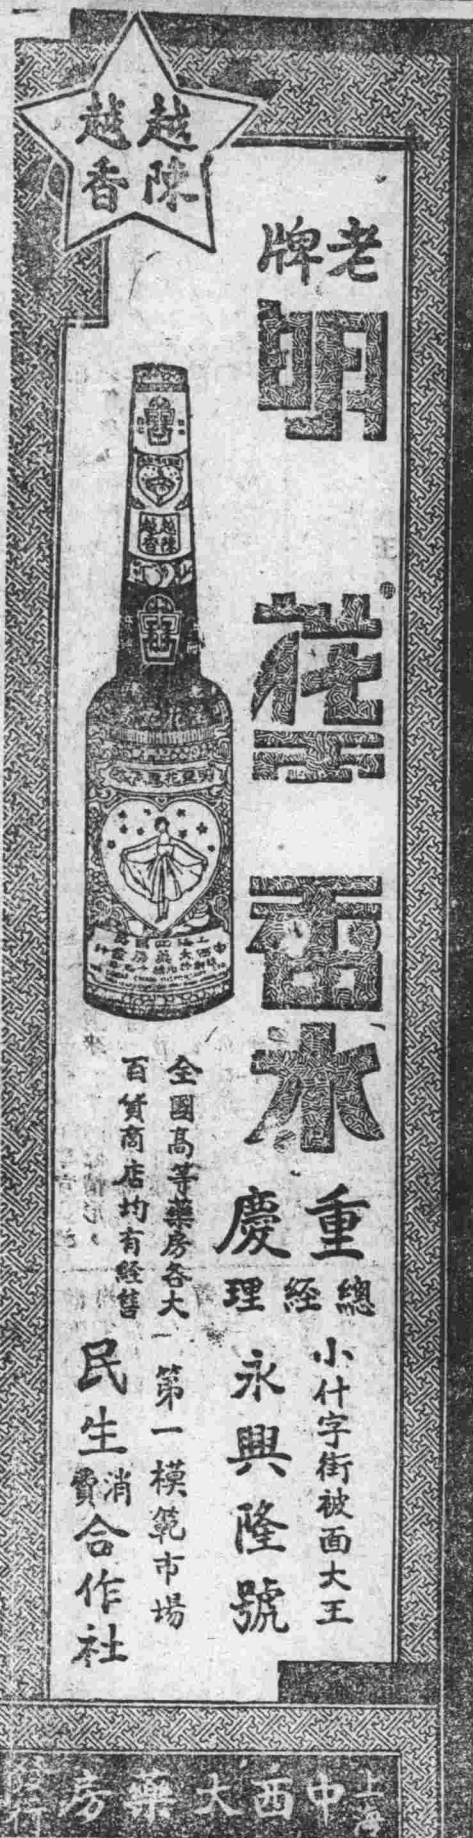 越陳
越香
老牌
明
花
香水
越陳
越香
重慶
總經理
小什字街被面大王
永興隆號
全國高等藥房各大
百貨商店均有經售
第一模範市場
民生消費合作社
上海中西大藥房發行